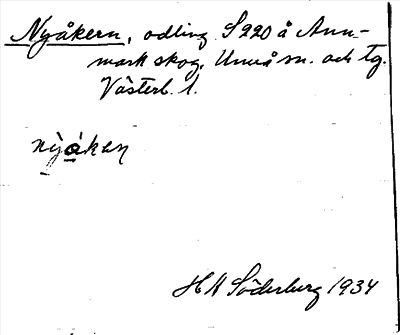 Nyåkern, odling S 220 å Ann-
mark skog, Umeå sn. och tg.
Västerb. l.
nỳåkeɳ
H A Söderberg 1934